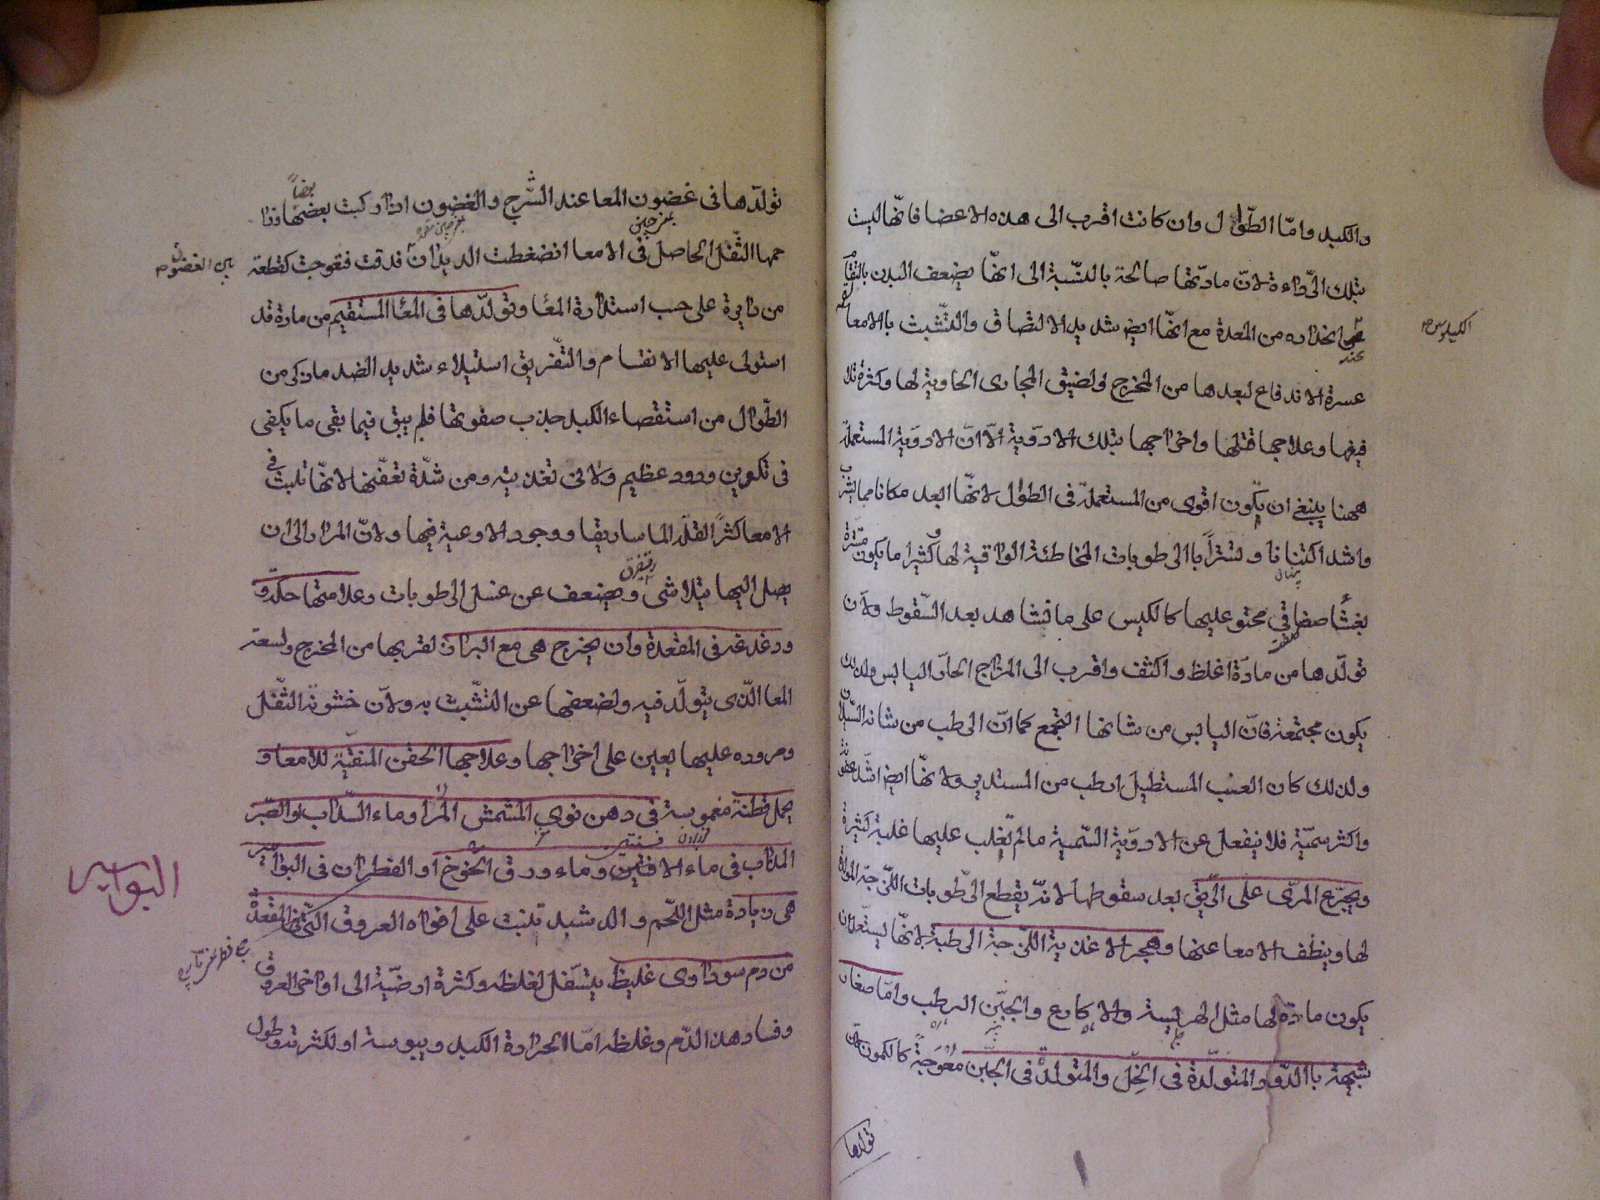 والكبد وامّا الطّوال وان كانت اقرب الى هذه الاعضا فانّها ليست
بتلك الرّداءة لانّ مادّتها صالحة بالنّسبة الى انّها يضعف البدن
انجذابه من المعدة مع انّها ايض شديد الالتصاق والتّشبث بالامعا
الكيلوس
عسرة الاندفاع لبعدها من المخرج ولضيق المجارى الحاوية لها وكثرة
فيها وعلاجها قتلها واخراجها بتلك الادوية الّا انّ الادوية المستعملة
ههنا ينبغى ان يكون اقوى من المستعملة فى الطوال لانّها ابعد مكانا مما يشرب
واشد اكتنانا وتستّراً بالرطوبات المخاطئة الواقية لها وكثيرا ما يكون
بغشاء صفاقي محتو عليها كالكيس على ما نشاهد بعد السّقوط ولان
تولّدها من مادّة اغلظ واكثف واقرب الى المزاج الحارّ اليابس ولذلك
يكون مجتمعة فانّ اليابس من شانها التجمع كما انّ الرطب من شانه السّيلان
ولذلك كان العنب المستطيل ارطب من المستدير ولانّها ايض اشدّ عفونة
واكثر سمّية فلا ينفعل عن الادويّة السّمية ما لم يغلب عليها غلبة كثيرة
ويجرّع المرّى على الرّيق بعد سقوطها لانّه يقطع الرّطوبات اللّزجة المولدة
لها وينظف الامعا عنها وهجر الاغذية اللّزجة الرطبة لانّها
يكون مادّة لها مثل الهريسة والاكارع والجبّن الرطب وامّا صغار
شبيهة بالدّود المتولّدة فى الخلّ والمتولدة فى الجبّن معوجّة كالكمون لان
تولدها
تولّدها فى غضون المعا عند الشّرج والغضون اذا ركبت بعضها
بعضاً
حمها الثّفل الحاصل فى الامعا انضغطت الديدان فدقت فعوجت كقطعة
بين الغضون
من دايرة على حسب استدارة المعا وتولّدها فى المعا المستقيم من مادة قد
استولى عليها الانقسام والتّفريق استيلاء شديد الضد ما ذكر من
الطّوال من استقصاء الكبد جذب صفوتها فلم يبق فيما بقى ما يكفى
فى تكوين دود عظيم ولا فى تغذيته ومن شدّة تعفّنها لانّها تلبث فى
الامعا كثراً لقلّة الماساريقا ووجود الاوعية فيها ولانّ المرار الى ان
يصل اليها يتلاشى ويضعف عن غسل الرطوبات وعلامتها حكّة
ودغدغة فى المقعدة وان يخرج هى مع البراز لقربها من المخرج ولسعة
المعا الّذى يتولّد فيه ولضعفها عن التشّبث به ولانّ خشونة الثّفل
ومروره عليها يعين على اخراجها وعلاجها الحقن المنقيّة للامعا و
يحمل قطنة مغموسة فى دهن نوى المشمش المرّ او ماء السّداب او الصّبر
المذاب فى ماء الافسنتين وماء ورق الخوخ او القطران فى البواسير
البواسير
هى زيادة مثل اللّحم والدشبد تنبت على افواه العروق الّتى فى المقعدة
من دم سوداوى غليظ يتسّفل لغلظه وكثرة ارضيّة الى اواخر العروق
وفساد هذا الدّم وغلظه امّا الحرارة الكبد ويبوسة او لكثرة